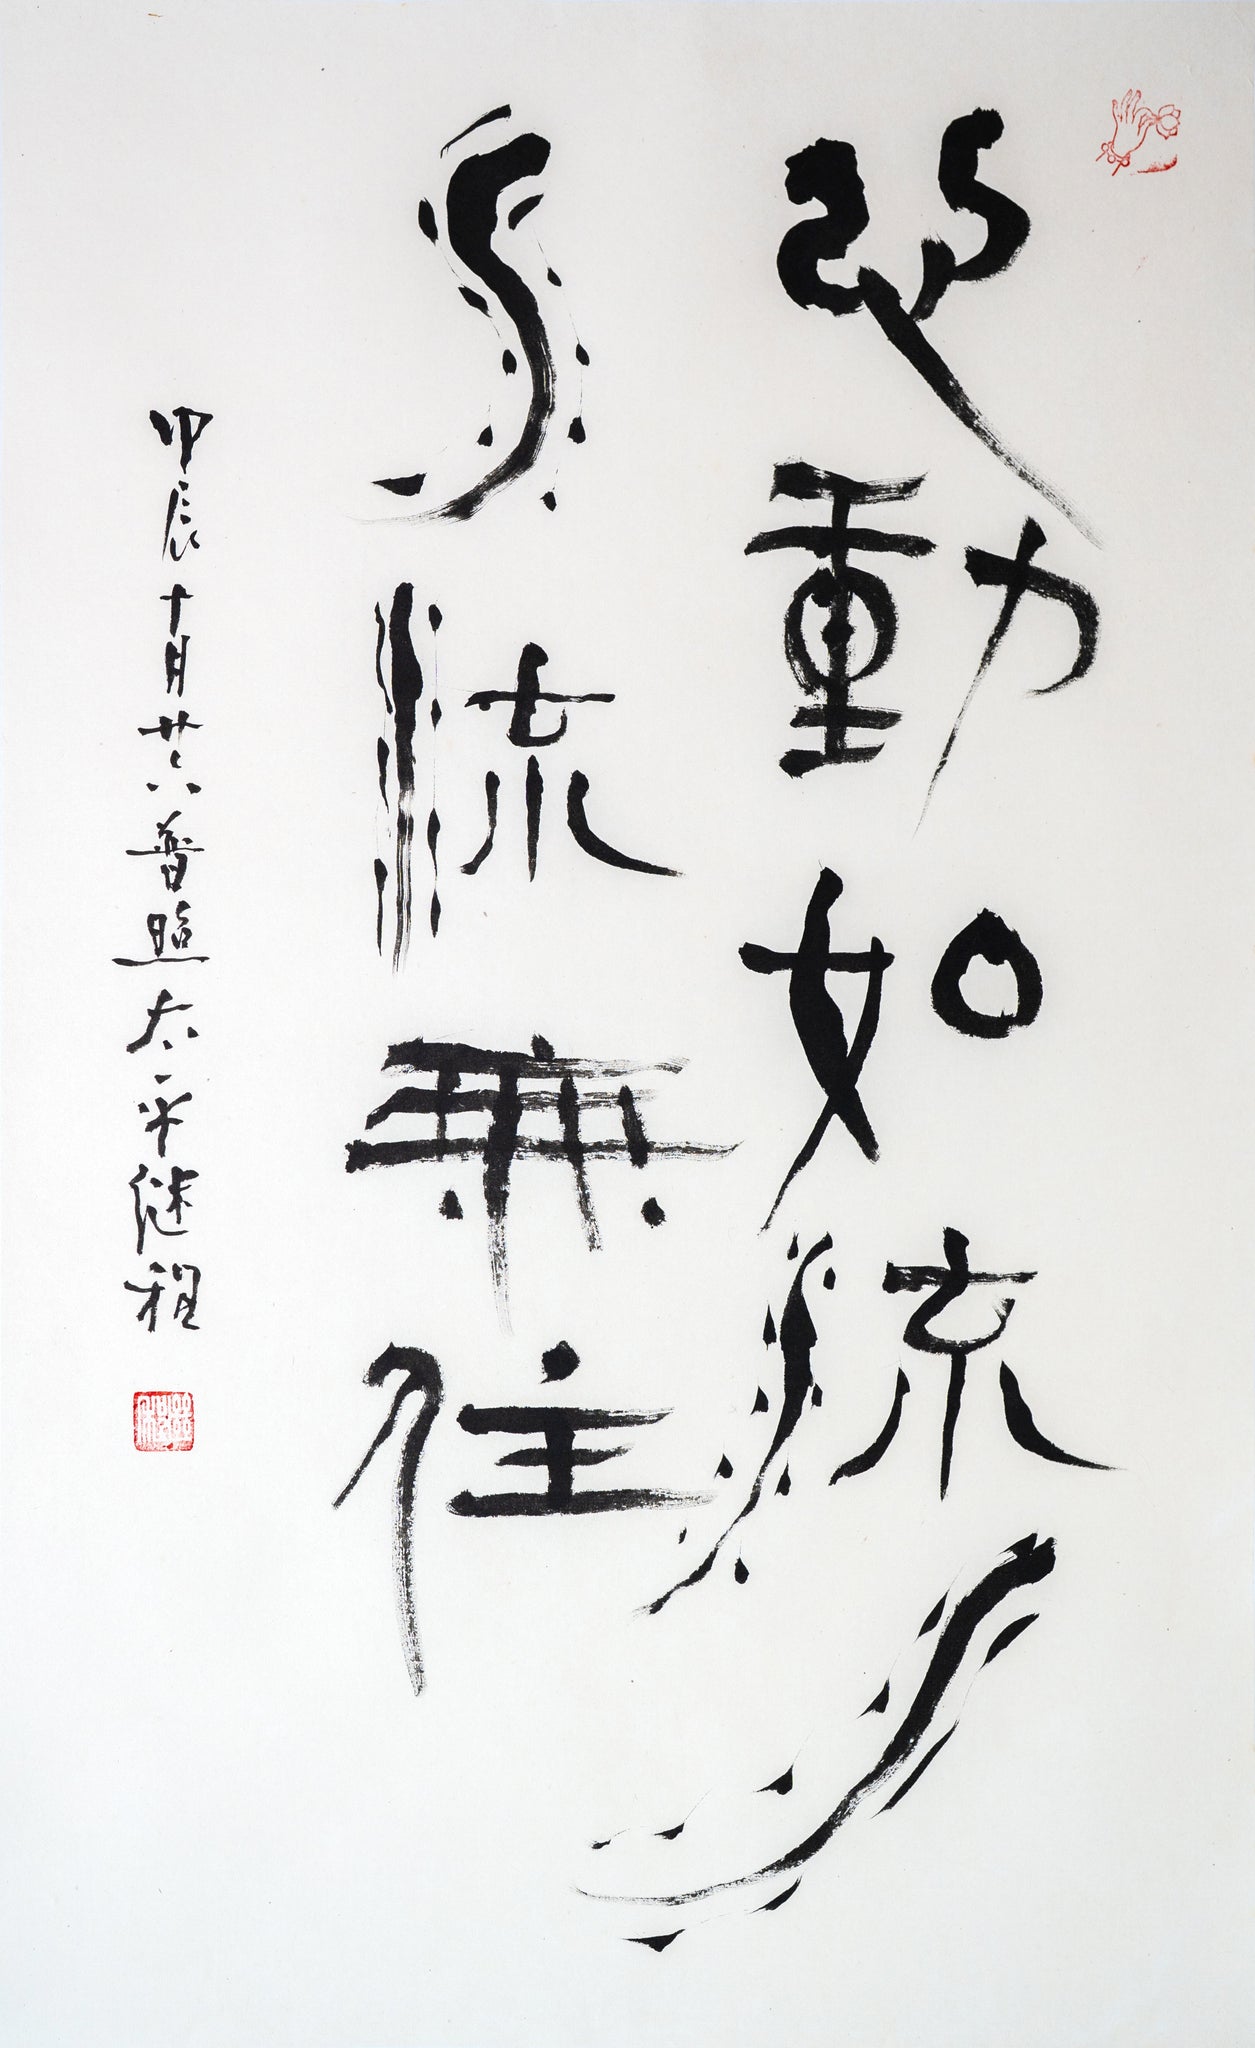 心動如流水
水流無住
甲辰十月廿六普照太平继程